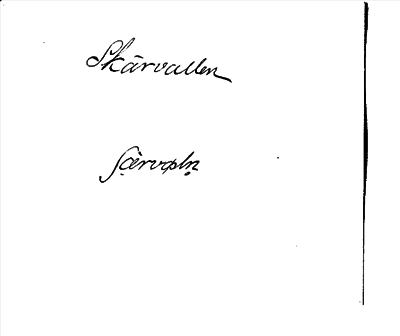 Skärvallen
ʃæ̀rvaḷn̥